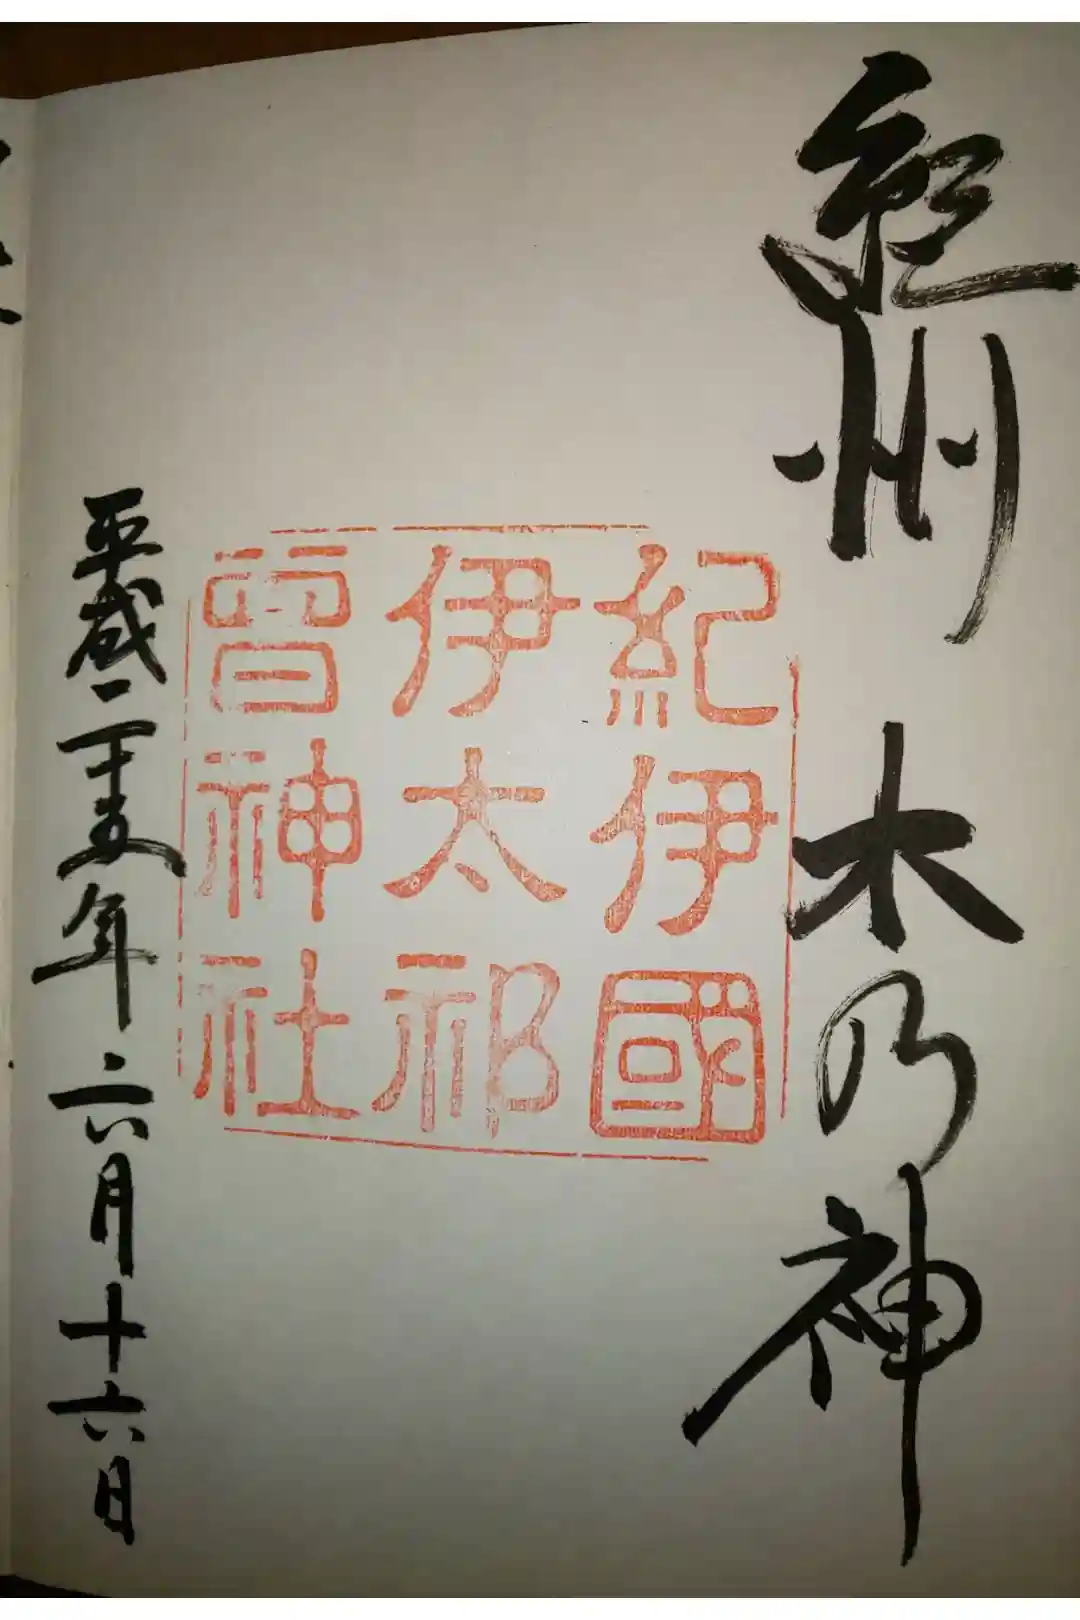 紀州 木乃神
紀伊國
伊太祁
曾神社
平成二十五年六月十六日